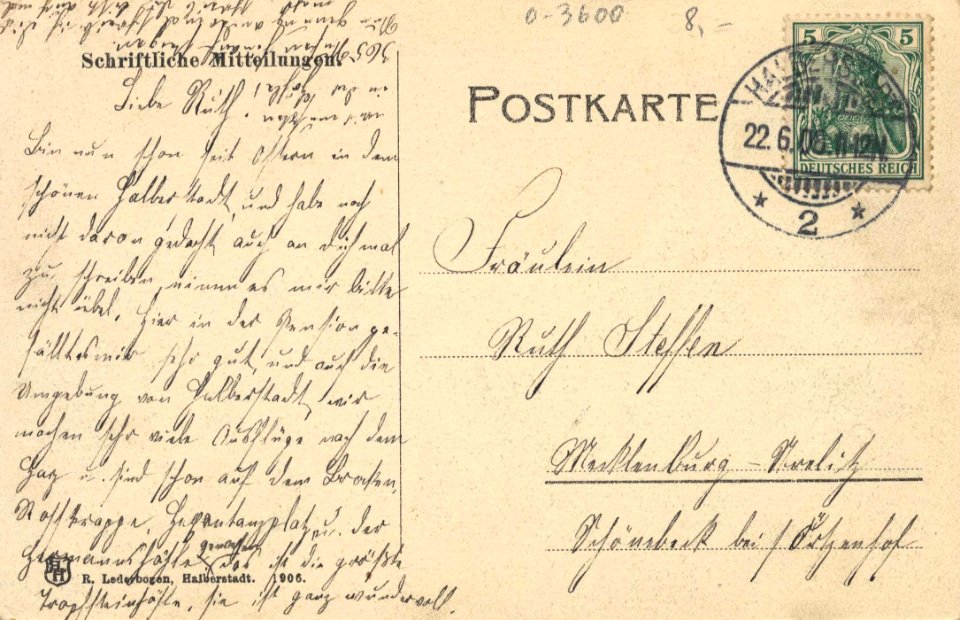 0-3600 8,-
Schriftliche Mitteilungen.
POSTKARTE
5 5
DEUTSCHES REICH
HALBERSTADT
22.6.06. 11-12N
* 2 *
Liebe Ruth!
Bin nun schon seit Ostern in dem
schönen Halberstadt, und habe noch
nicht daran gedacht auch an dich mal
zu schreiben, nimm es mir bitte
nicht übel. Hier in der Pension ge-
fällt es mir sehr gut, und auch die
Umgebung von Halberstadt, wir
machen sehr viele Ausflüge nach dem
Harz u. sind schon auf dem Brocken,
Rosstrappe, Hexentanzplatz u. der
Hermannshöhle gewesen, das ist die größte
Tropfsteinhöhle, sie ist ganz wundervoll.
Fräulein
Ruth Steffen
Mecklenburg-Strelitz
Schönbeck bei Oertzenhof
R. Lederbogen, Halberstadt. 1906.